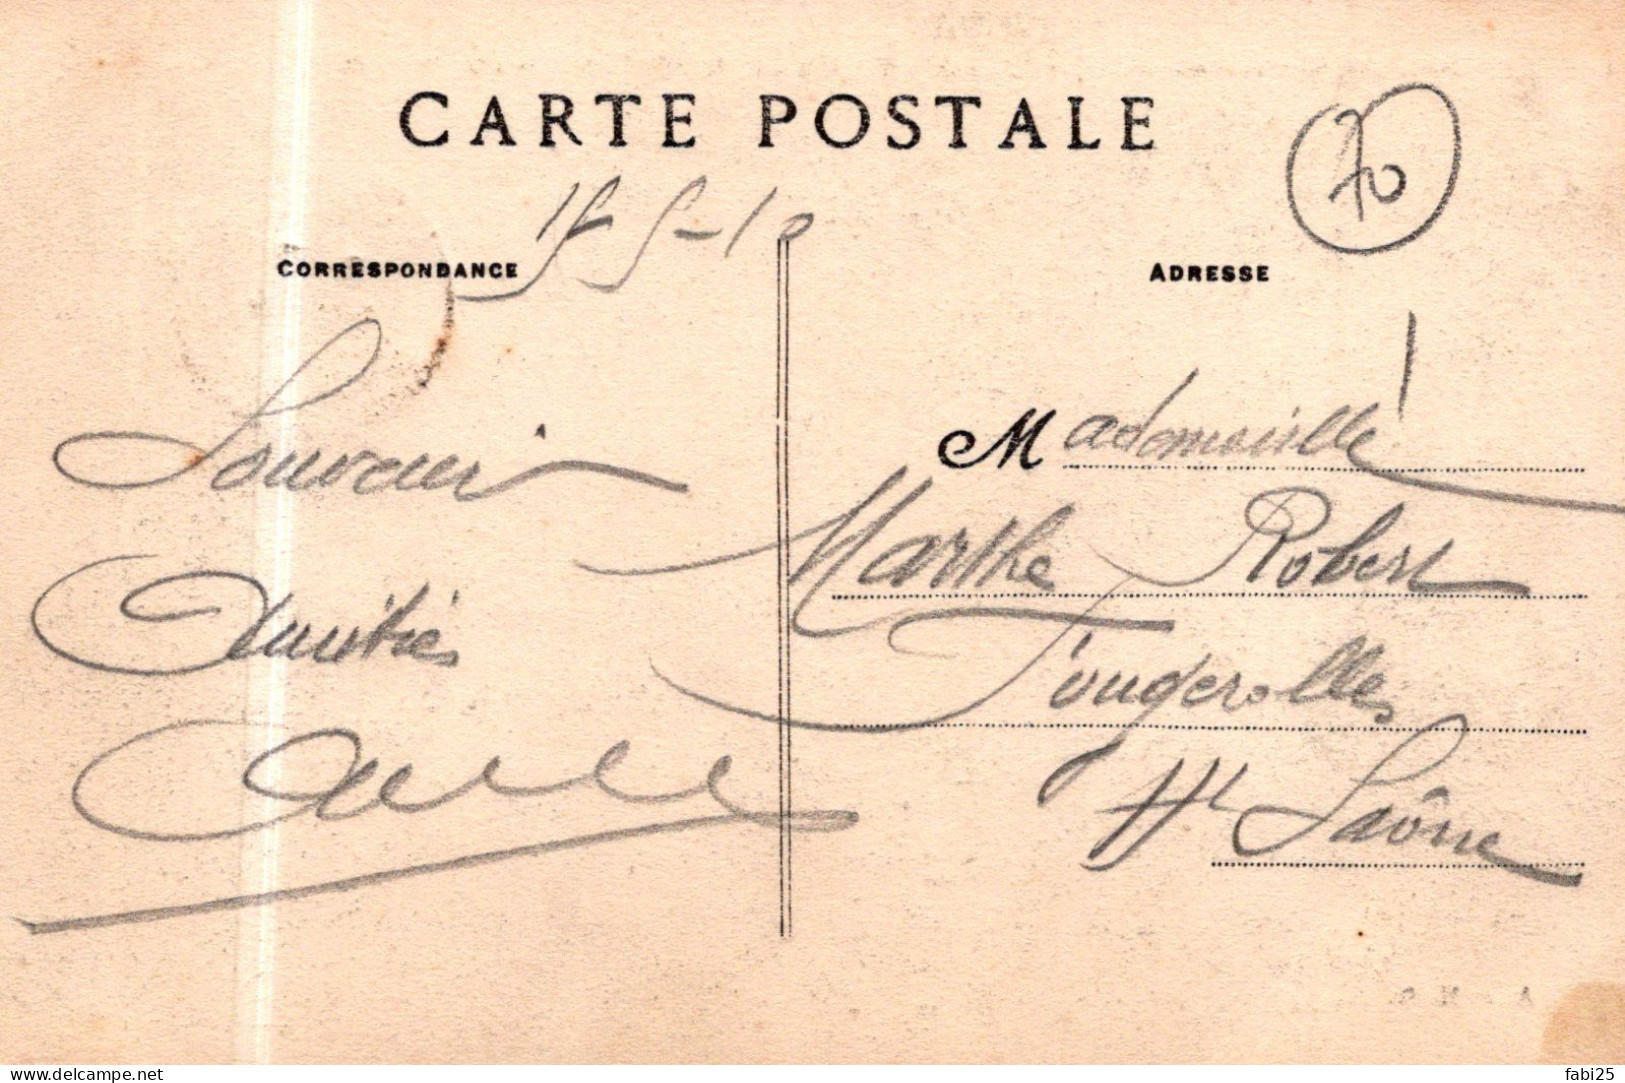 CARTE POSTALE
70
15-5-10
CORRESPONDANCE
ADRESSE
Souvenir
Amitiés
Mademoiselle
Marthe Robert
Fougerolles
Hte Saône
delcampe.net
fabi25